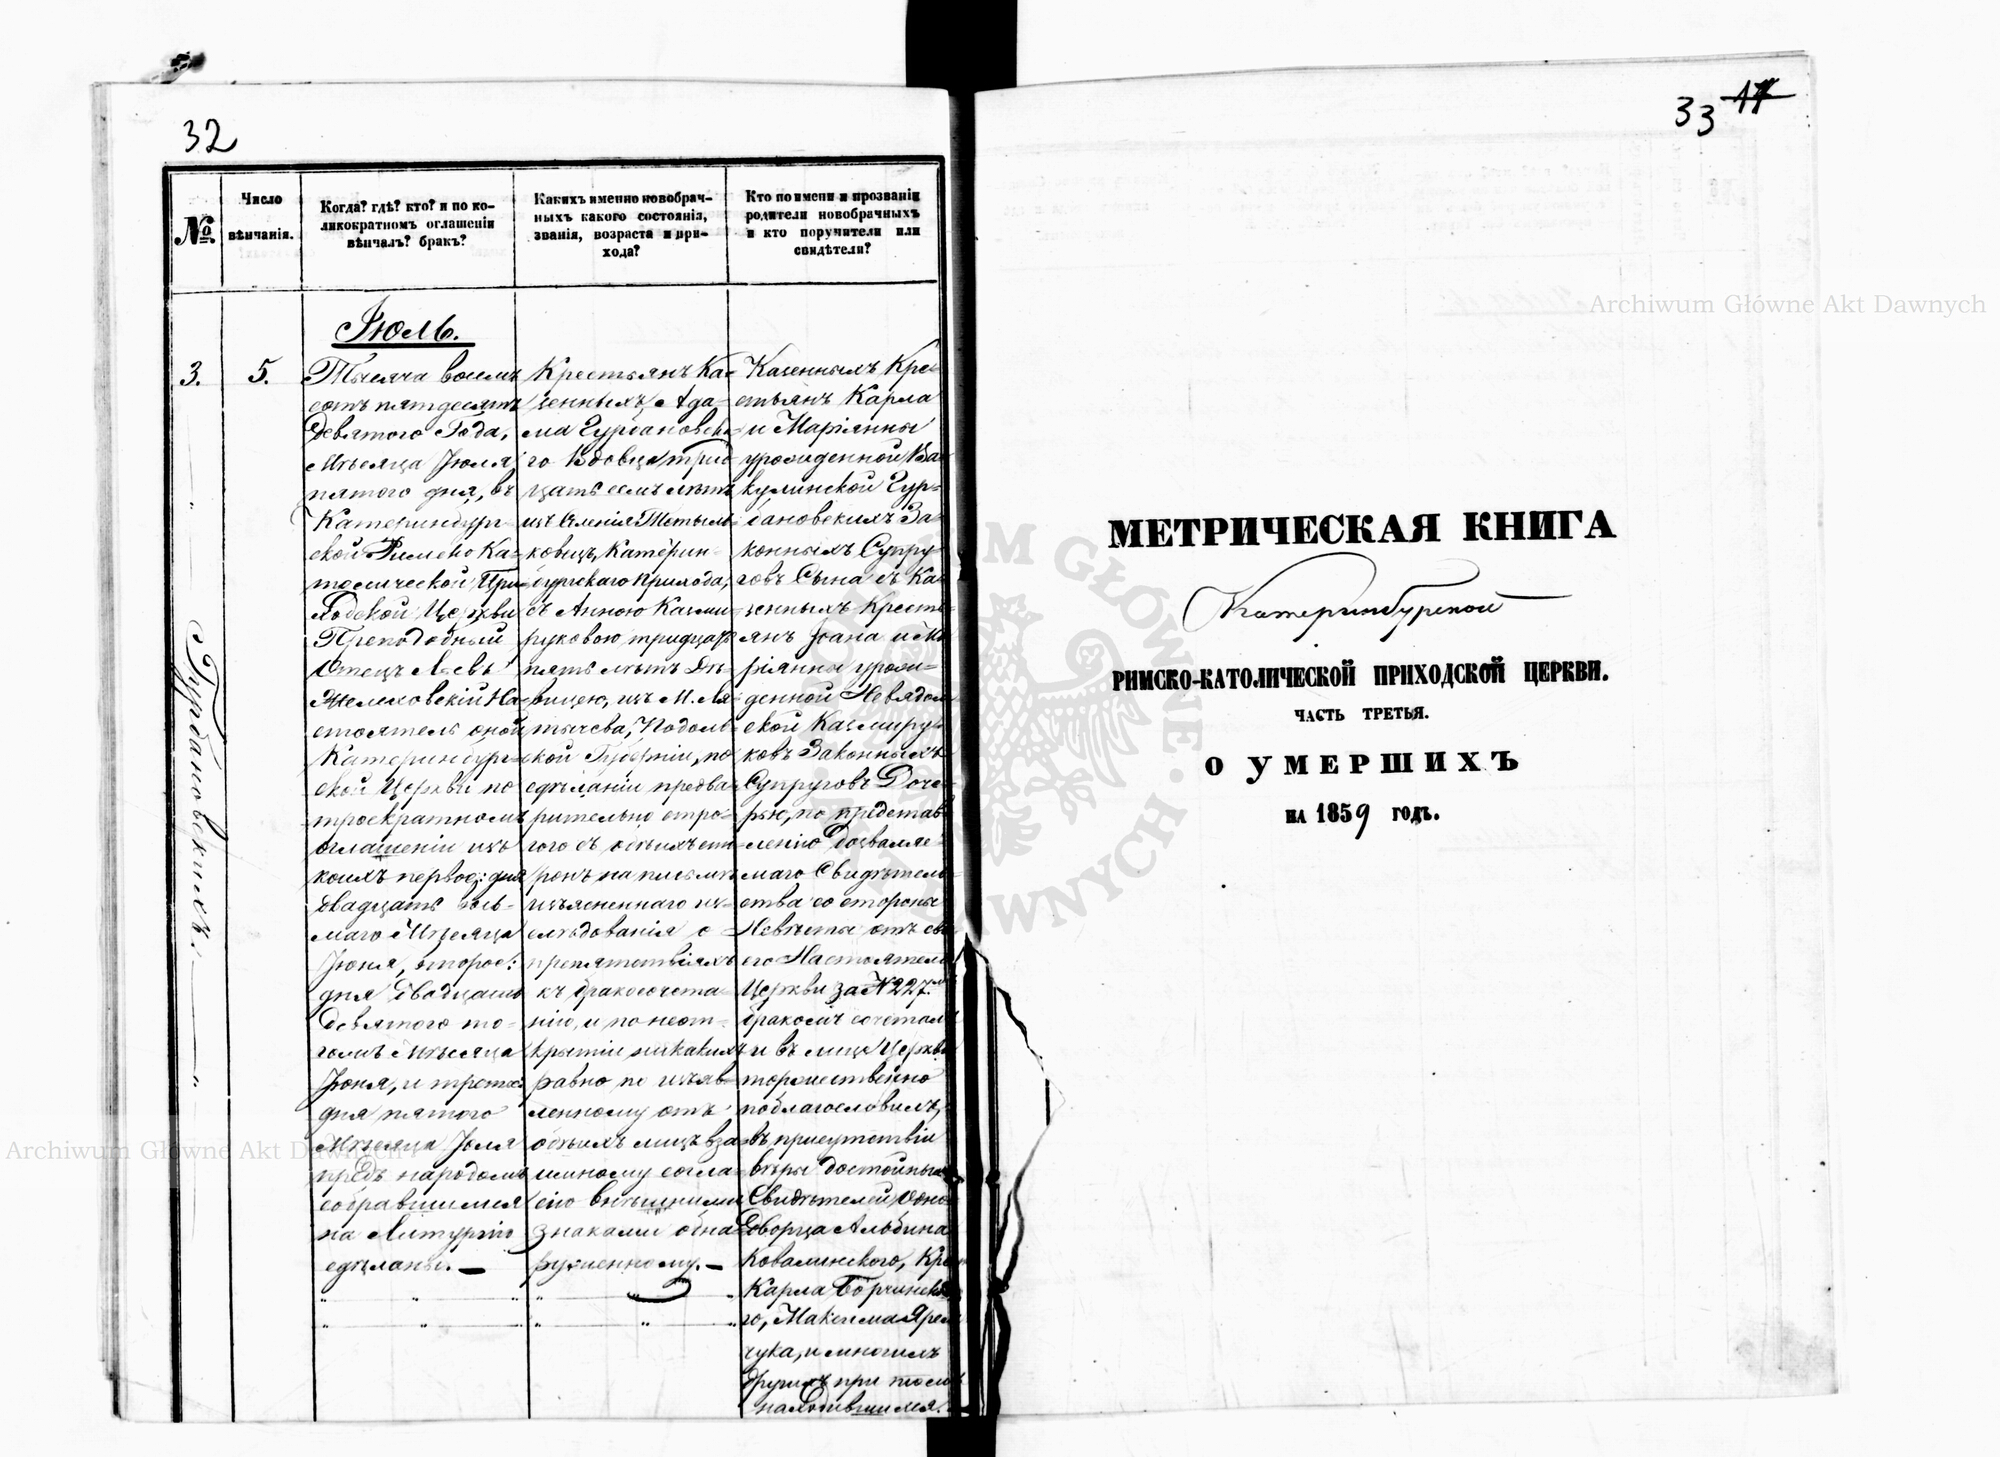 32
№.
Число
вѣнчанія.
Когда? гдѣ? кто? и по ко-
ликократномъ оглашеніи
вѣнчалъ? бракъ?
Какихъ именно новобрач-
ныхъ какого состоянія,
званія, возраста и при-
хода?
Кто по имени и прозванію
родители новобрачныхъ
и кто поручители или
свидѣтели?
3.
5.
Гурбановскихъ.
Іюль.
Тысяча восемь
сотъ пятдесятъ
девятого Года,
Мѣсяца Іюля
пятого дня, въ
Катеринбург-
ской Римско Ка-
толической При-
ходской Церкви
Преподобный
Отецъ Левъ
Настоятель оной
Катеринбург-
ской Церкви по
троекратномъ
оглашеніи изъ
коихъ первое: дня
двадцать вось-
маго Мѣсяца
Іюня, второе:
дня двадцать
девятого то-
гожъ Мѣсяца
Іюня, и третое
дня пятого
Мѣсяца Іюля
предъ народомъ
собравшимся
на Литургію
сдѣланы.
Крестьянъ Ка-
зенныхъ Ада-
ма Гурбановска-
го Вдовца трид-
цать семъ лѣтъ
изъ Селенія
Катерин-
бургскаго Прихода,
съ Анною Казми-
руковою тридцать
пять лѣтъ Дѣ-
вицею, изъ М. Ля-
тычева, Подоль-
ской Губерніи, по
сдѣланіи предва-
рительно стро-
гого съ обѣихъ сто-
ронъ на письмѣ
изъясненнаго из-
слѣдованія о
препятствіяхъ
къ бракосочета-
нію, и по неот-
крытіи никакихъ
равно по изъяв-
ленному отъ
обѣихъ лицъ вза-
имному согла-
сію внѣшними
знаками обна-
руженному.
Казенныхъ Кре-
стьянъ Карла
и Маріянны
урожденной Ва-
кулинской Гур-
бановскихъ За-
конныхъ Супру-
говъ Сына съ Ка-
зенныхъ Кресть-
янъ Іоана и Ма-
ріянны урож-
денной Невядом-
ской Казмиру-
ковъ Законныхъ
Супруговъ Доче-
рью, по представ-
ленію дозволяе-
маго Свидѣтель-
ства со стороны
Невѣсты отъ сво-
его Настоятеля
Церкви за № 227.
бракомъ сочеталъ
и въ лице Церкви
торжественно
поблагословилъ,
въ присутствіи
вѣры достойныхъ
Свидѣтелей, Одно-
дворца Альбина
Ковалинского, Крест.
Карла Борчинско-
го, Максима Ярем-
чука, и многихъ
другихъ при томъ
находившихся.
33 17
МЕТРИЧЕСКАЯ КНИГА
Катеринбургской
РИМСКО-КАТОЛИЧЕСКОЙ ПРИХОДСКОЙ ЦЕРКВИ.
ЧАСТЬ ТРЕТЬЯ.
О УМЕРШИХЪ
НА 1859 ГОДЪ.
Archiwum Główne Akt Dawnych
Archiwum Główne Akt Dawnych